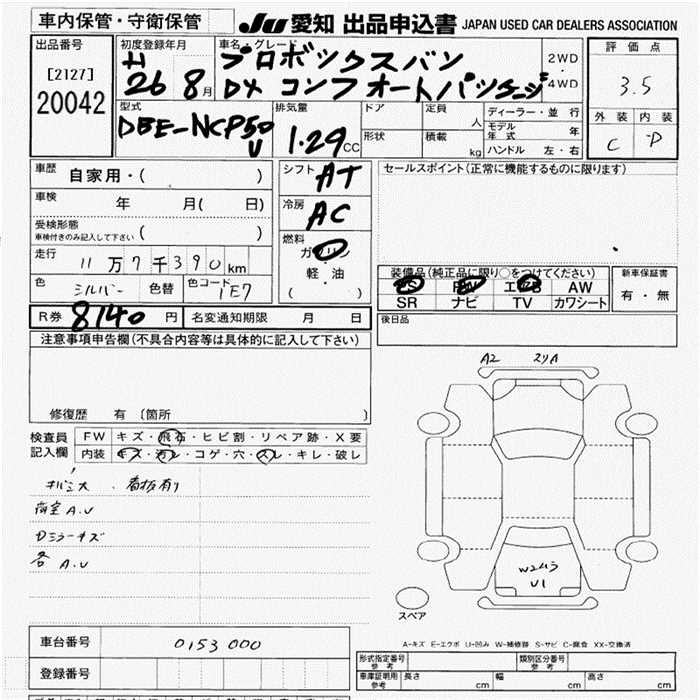 車内保管・守衛保管
JU 愛知 出品申込書 JAPAN USED CAR DEALERS ASSOCIATION
出品番号
[2127]
20042
初度登録年月
H
26 8月
車名・グレード
プロボックスバン
DX コンフォートパッケージ
2WD
・
4WD
評価点
3.5
外装 内装
C D
型式
DBE-NCP50
V
排気量
1.29CC
ドア
形状
定員 人
積載 kg
ディーラー・並行
モデル年式 年
ハンドル 左・右
車歴 自家用・( )
車検 年 月( 日)
受検形態
車検付きのみ記入して下さい ( )
走行 11万7千390km
色 シルバー 色替 色コード 1E7
シフト AT
冷房 AC
燃料
ガソリン
・
軽・油
( )
セールスポイント(正常に機能するものに限ります)
装備品(純正品に限り○をつけてください)
PS PW エアB AW
SR ナビ TV カワシート
新車保証書
有・無
R券 8140円 名変通知期限 月 日
後日品
注意事項申告欄(不具合内容等は具体的に記入して下さい)
修復歴 有〔箇所 〕
検査員
記入欄
FW キズ・飛石・ヒビ割・リペア跡・X要
内装 キズ・汚レ・コゲ・穴・スレ・キレ・破レ
看板有り
荷室A.U
Dミラーキズ
各A.U
A2 スリA
W2ムラ
U1
スペア
A-キズ E-エクボ U-凹み W-補修跡 S-サビ C-腐食 XX-交換済
車台番号 0153000
登録番号
形式指定番号
参考
類別区分番号
参考
車庫証明用
参考
長さ cm 幅 cm 高さ cm